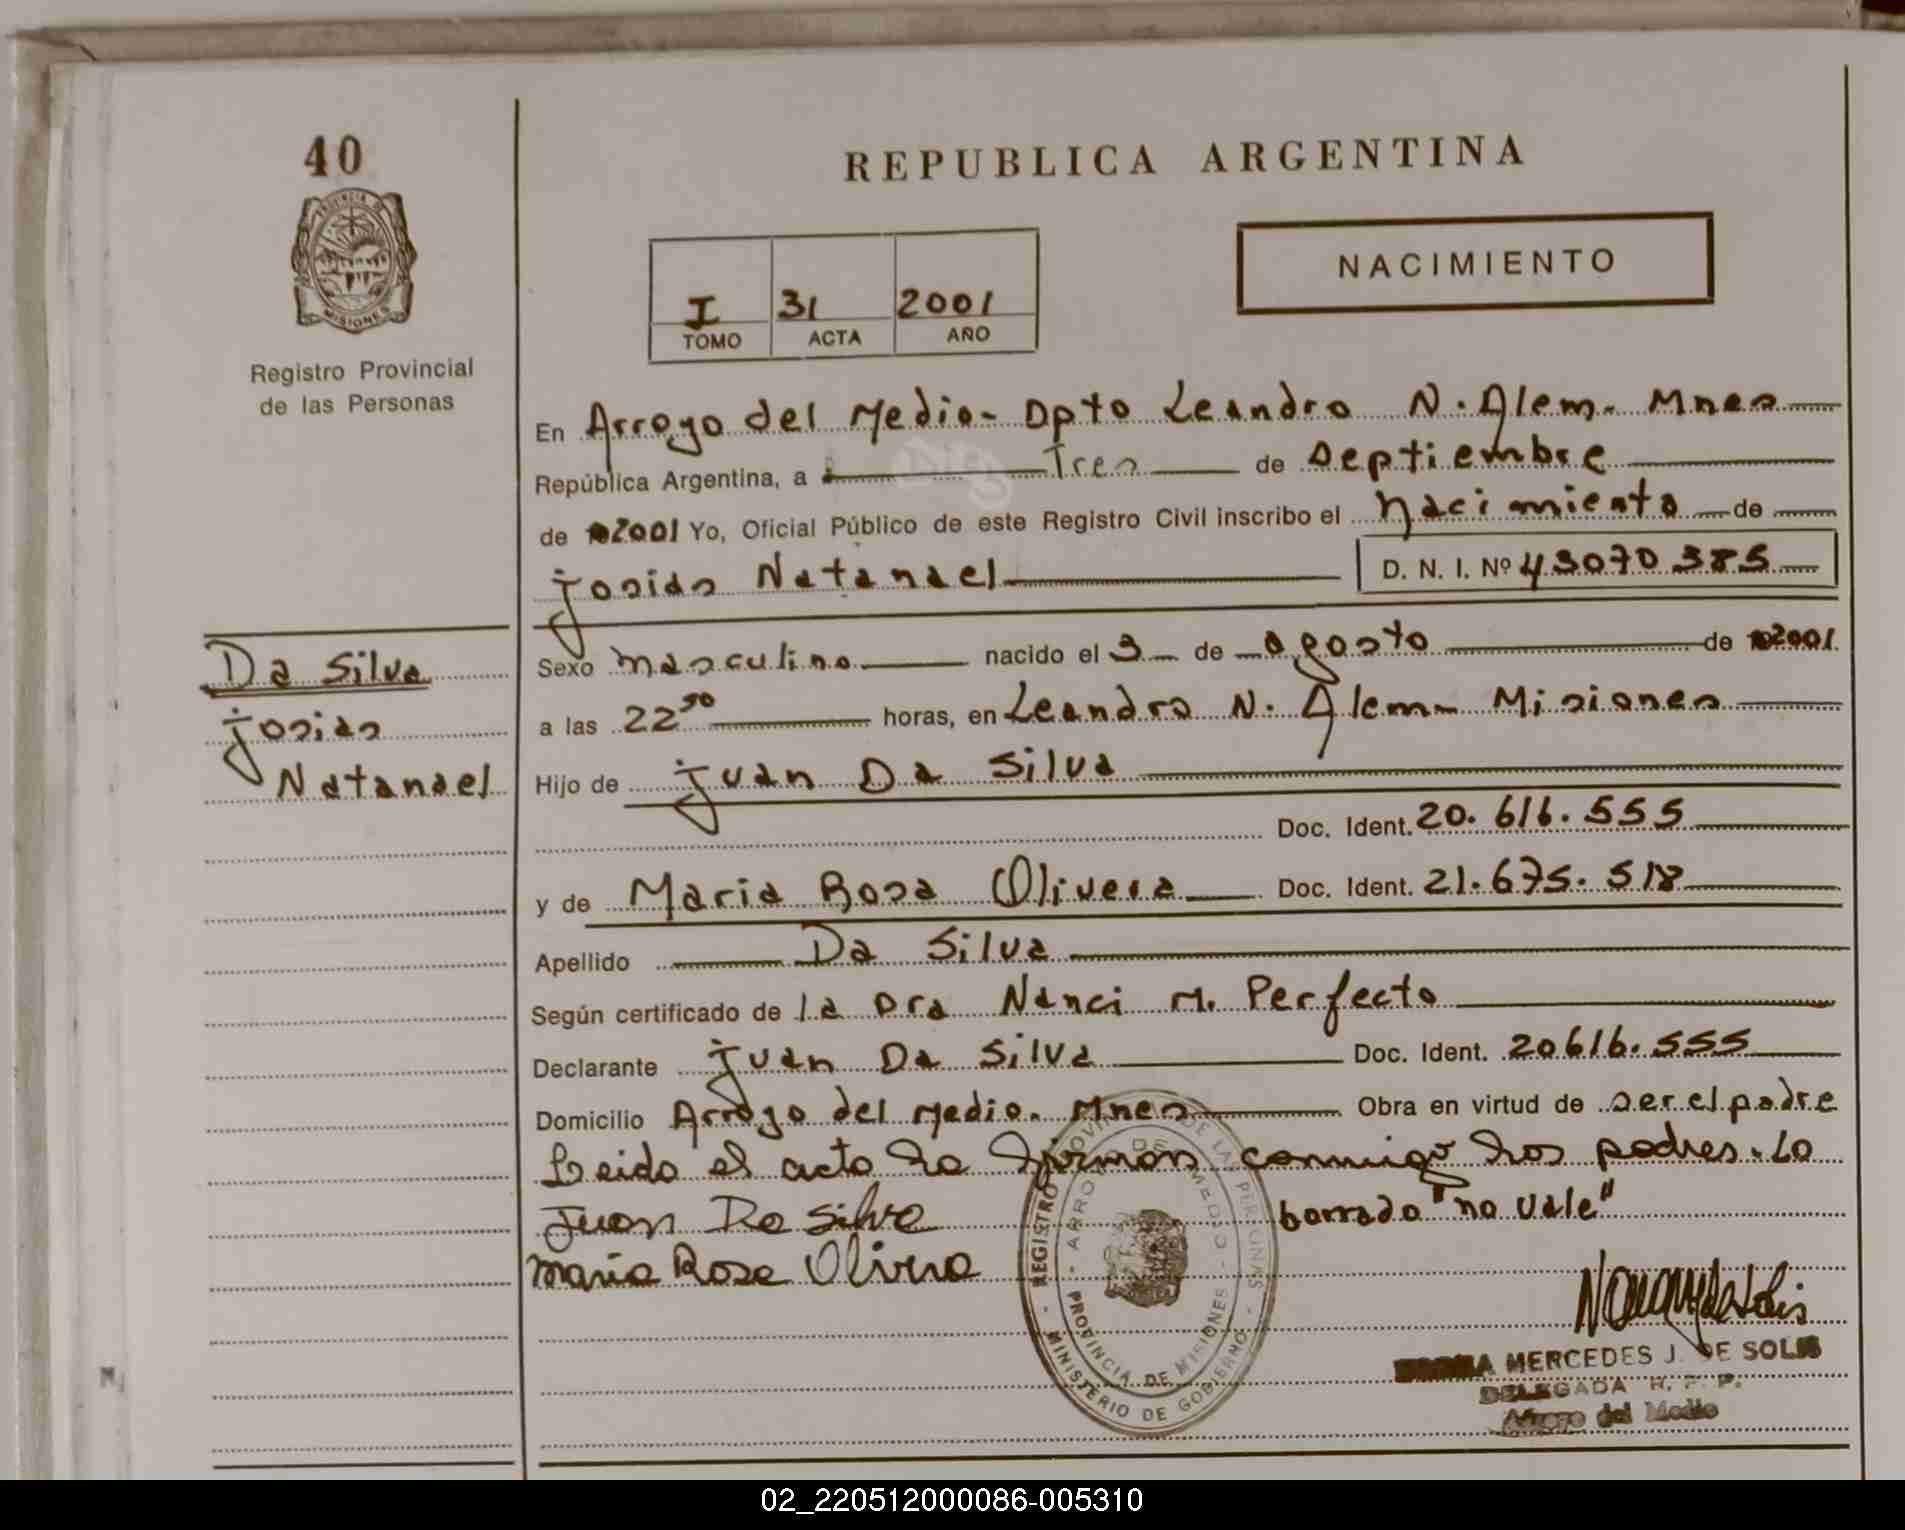 40
PROVINCIA DE
MISIONES
Registro Provincial
de las Personas
REPUBLICA ARGENTINA
I 31 2001
TOMO ACTA AÑO
NACIMIENTO
En Arroyo del Medio- Dpto Leandro N. Alem- Mnes
República Argentina, a Tres de Septiembre
de 2001 Yo, Oficial Público de este Registro Civil inscribo el Nacimiento de
Josias Natanael D. N. I. Nº 43070385
Da Silva
Josias
Natanael
Sexo masculino nacido el 3 de agosto de 2001
a las 22 50 horas, en Leandro N. Alem- Misiones
Hijo de Juan Da Silva
Doc. Ident. 20.616.555
y de Maria Rosa Olivera Doc. Ident. 21.675.518
Apellido Da Silva
Según certificado de la Dra Nanci M. Perfecto
Declarante Juan Da Silva Doc. Ident. 20616.555
Domicilio Arroyo del Medio. Mnes Obra en virtud de ser el padre
Leido el acta la firman conmigo los padres. Lo
borrado "no vale"
Juan Da Silva
Maria Rosa Olivera
REGISTRO PROVINCIAL DE LAS PERSONAS
MINISTERIO DE GOBIERNO
ARROYO DEL MEDIO
PROVINCIA DE MISIONES
MERCEDES J. DE SOLIS
DELEGADA R. P. P.
Arroyo del Medio
02_220512000086-005310